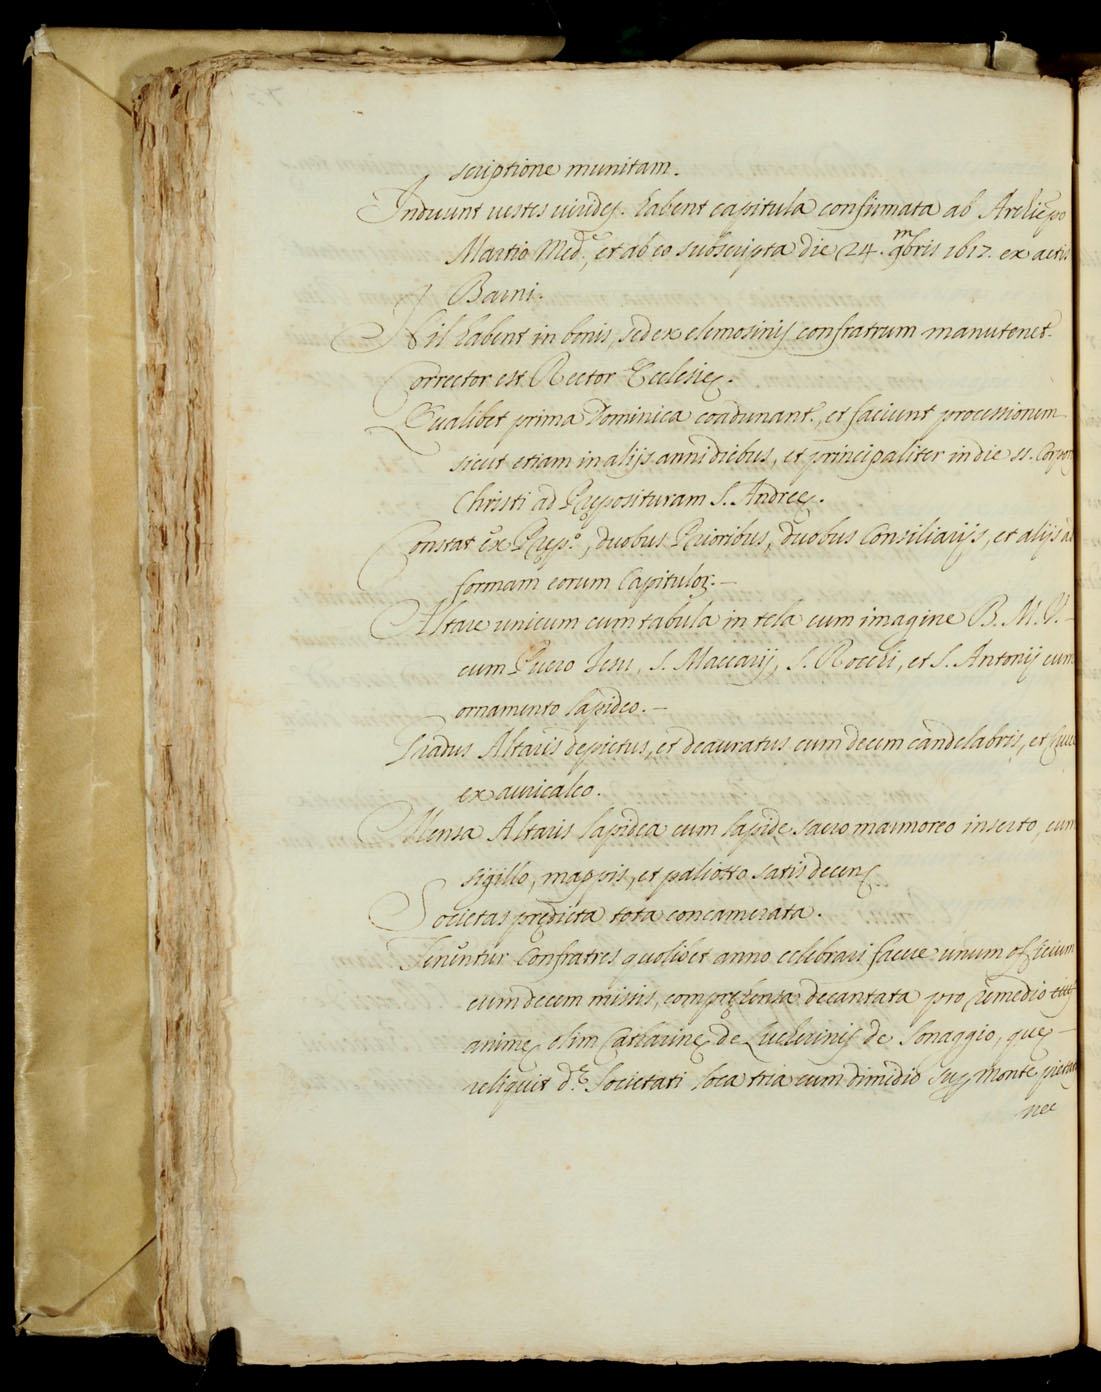 scriptione munitam.
Induunt vestes virides. habent capitula confirmata ab Archiepo
Martio Med.e, et ab eo subscripta die 24. 9mbris 1617. ex actis
Barni.
Nil habent in bonis, sed ex elemosinis confratrum manutenet.r
Corrector est Rector Ecclesię.
Qualibet prima Dominica coadunant.r, et faciunt processionem
sicut etiam in alijs anni diebus, et principaliter in die ss. Corporis
Christi ad Pręposituram S. Andreę.
Constat ex Pręp.o, duobus Prioribus, duobus Consiliarijs, et alijs ad
formam eorum Capitulor. -
Altare unicum cum tabula in tela cum imagine B. M. V. -
cum Puero Jesu, S. Maccarij, S. Rocchi, et S. Antonij cum
ornamento lapideo. -
Gradus Altaris depictus, et deauratus cum decem candelabris, et
ex auricalco.
Mensa Altaris lapidea cum lapide sacro marmoreo inserto, cum
sigillo, mappis, et paliotto satis decen
Societas prędicta tota concamerata.
Tenentur Confratres quolibet anno celebrari facere unum officium
cum decem missis, compręhensa decantata pro remedio
animę olim Catharinę de Lucherinis de Sonaggio, quę -
reliquit d.ę Societati loca tria cum dimidio sup. monte pietat
nec